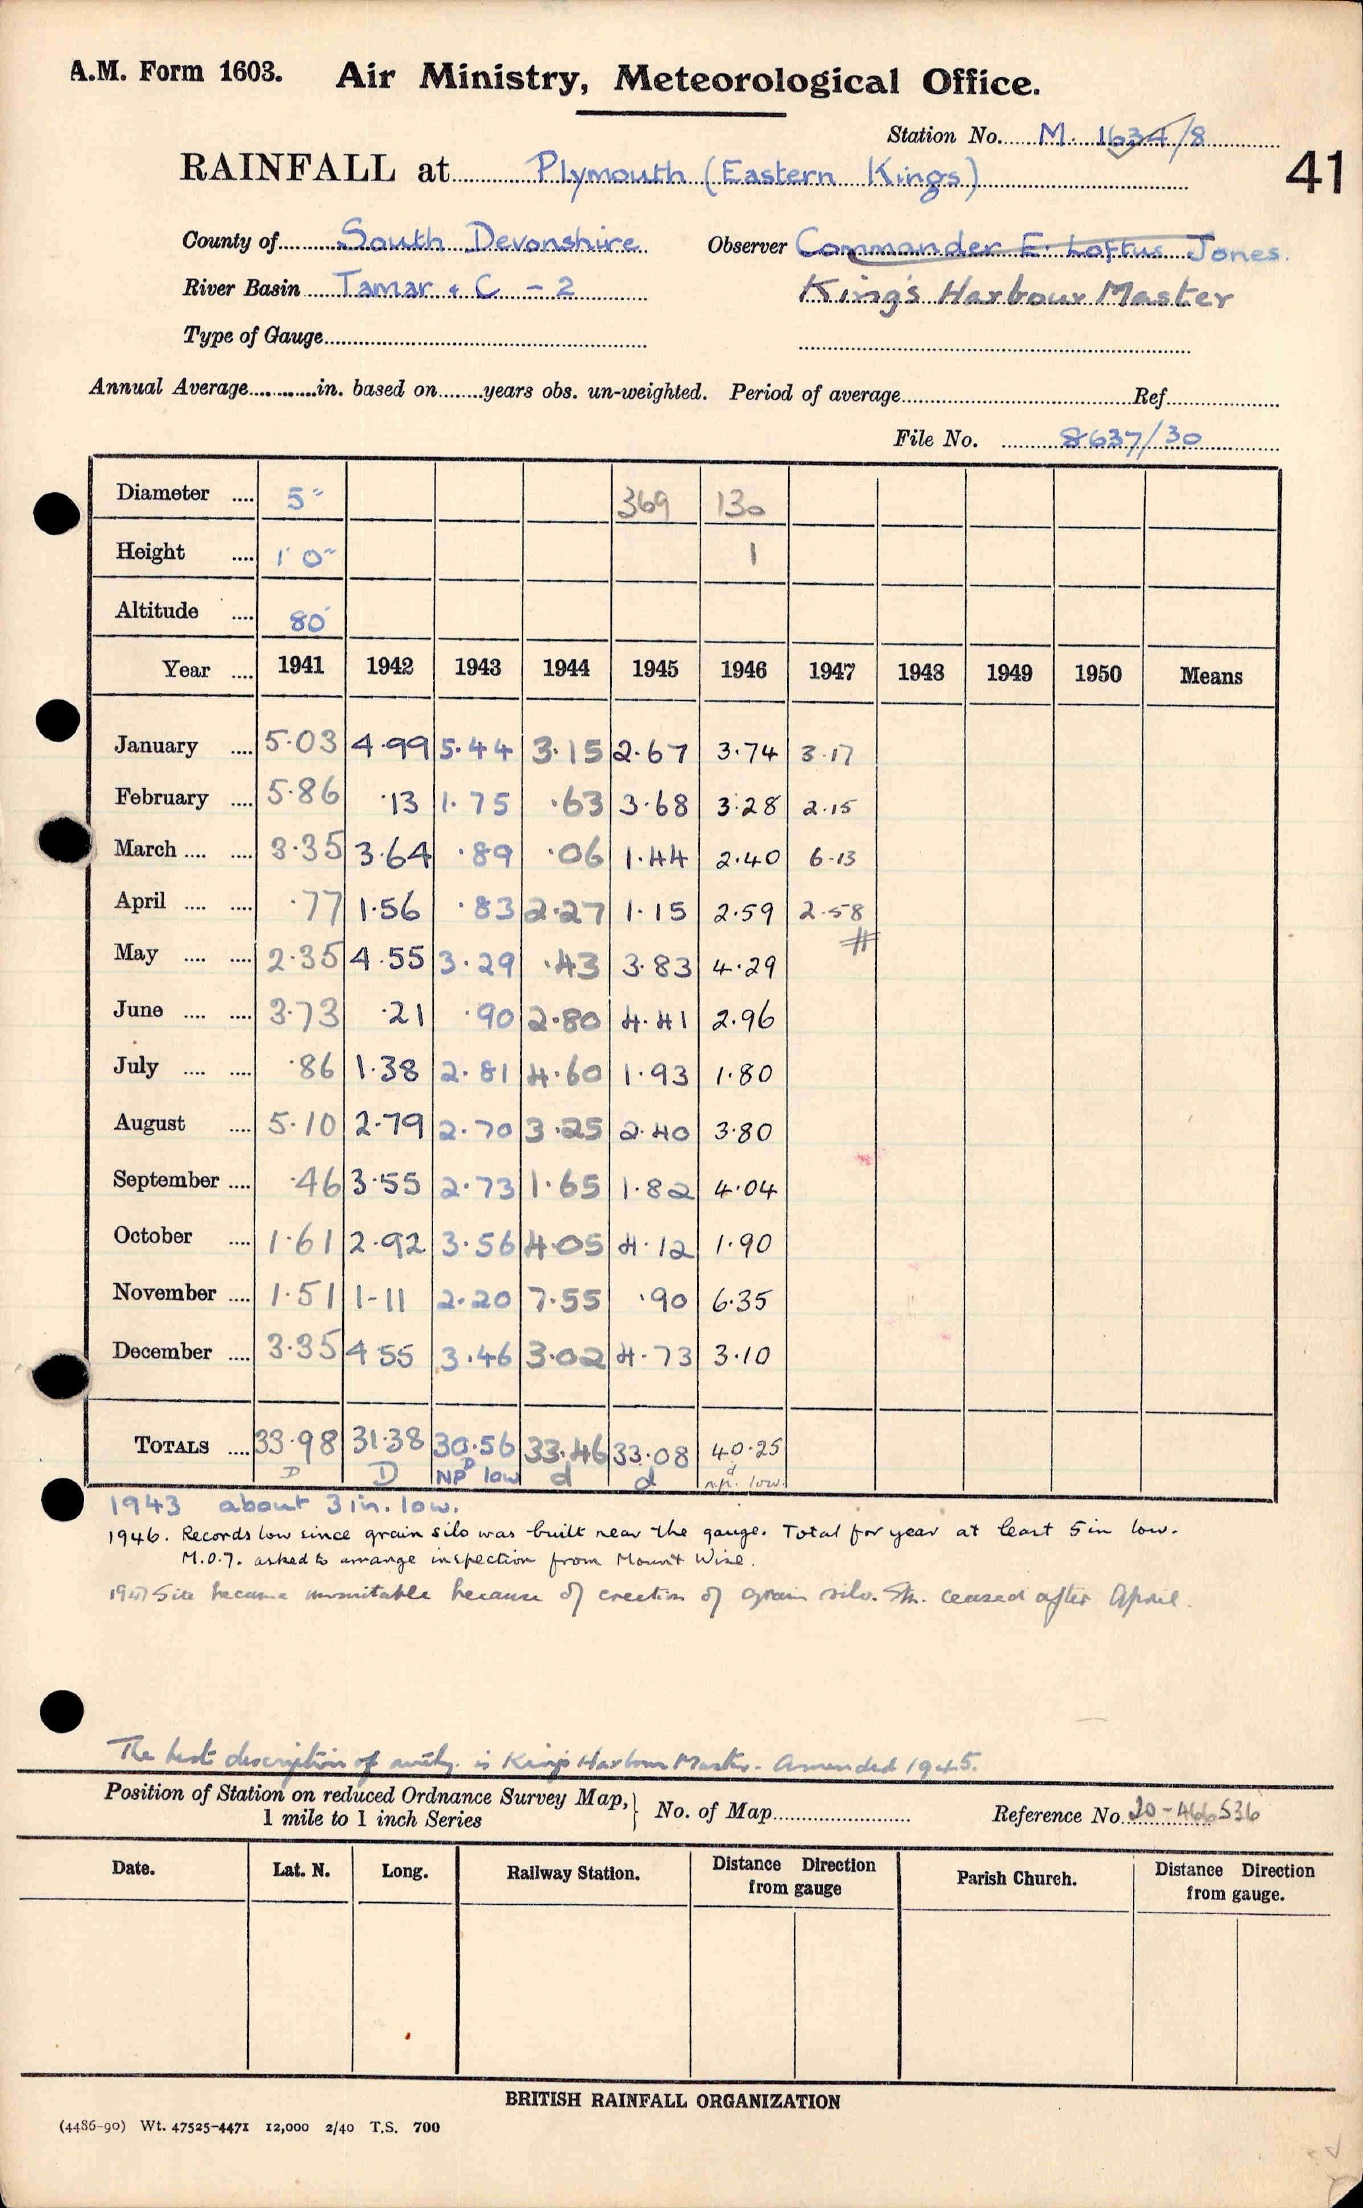 A.M. Form 1603. Air Ministry, Meteorological Office.
Station No. M. 1634/8
41
RAINFALL at Plymouth (Eastern Kings)
County of South Devonshire Observer Commander E. Loftus Jones.
River Basin Tamar & C - 2 King's Harbour Master
Type of Gauge
Annual Average in. based on years obs. un-weighted. Period of average Ref
File No. 8637/30
Diameter 5" 369 130
Height 1' 0" 1
Altitude 80'
Year 1941 1942 1943 1944 1945 1946 1947 1948 1949 1950 Means
January 5.03 4.99 5.44 3.15 2.67 3.74 3.17
February 5.86 .13 1.75 .63 3.68 3.28 2.15
March 3.35 3.64 .89 .06 1.44 2.40 6.13
April .77 1.56 .83 2.27 1.15 2.59 2.58
May 2.35 4.55 3.29 .43 3.83 4.29
June 3.73 .21 .90 2.80 4.41 2.96
July .86 1.38 2.81 4.60 1.93 1.80
August 5.10 2.79 2.70 3.25 2.40 3.80
September .46 3.55 2.73 1.65 1.82 4.04
October 1.61 2.92 3.56 4.05 4.12 1.90
November 1.51 1-11 2.20 7.55 .90 6.35
December 3.35 4 55 3.46 3.02 4.73 3.10
TOTALS 33.98 31.38 30.56 33.46 33.08 40.25
D D D NP low d d d n.p. low.
1943 about 3 in. low.
1946. Records low since grain silo was built near the gauge. Total for year at least 5 in low.
M.O.7. asked to arrange inspection from Mount Wise.
1947 Site became unsuitable because of erection of grain silo. Stn. ceased after April.
The best description of is King's Harbour Master. Amended 1945.
Position of Station on reduced Ordnance Survey Map, 1 mile to 1 inch Series } No. of Map Reference No. 20-466536
Date. Lat. N. Long. Railway Station. Distance Direction from gauge Parish Church. Distance Direction from gauge.
BRITISH RAINFALL ORGANIZATION
(4486-90) Wt. 47525-4471 12,000 2/40 T.S. 700